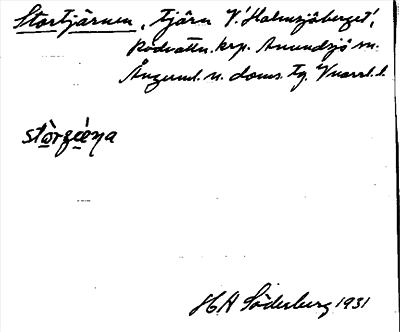 Stortjärnen, tjärn V. 'Holmsjöberget',
Rödvattn. krp. Anundsjö sn.
Ångerml. n. doms. tg. Vnorrl. l.
stòrʒæ̀ṇa
HA Söderberg 1931